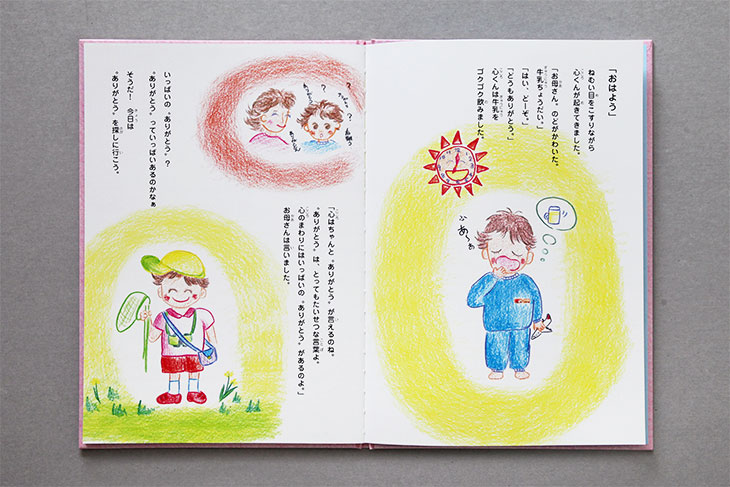 「おはよう」
ねむい目をこすりながら
心くんが起きてきました。
「お母さん。のどがかわいた。
牛乳ちょうだい。」
「はい、どーぞ。」
「どうもありがとう。」
心くんは牛乳を
ゴクゴク飲みました。
ふあ〜ぁ
「心はちゃんと“ありがとう”が言えるのね。
“ありがとう”は、とってもたいせつな言葉よ。
心のまわりにはいっぱいの“ありがとう”があるのよ。」
お母さんは言いました。
いっぱいの“ありがとう”?
“ありがとう”っていっぱいあるのかなぁ
そうだ! 今日は
“ありがとう”を探しに行こう。